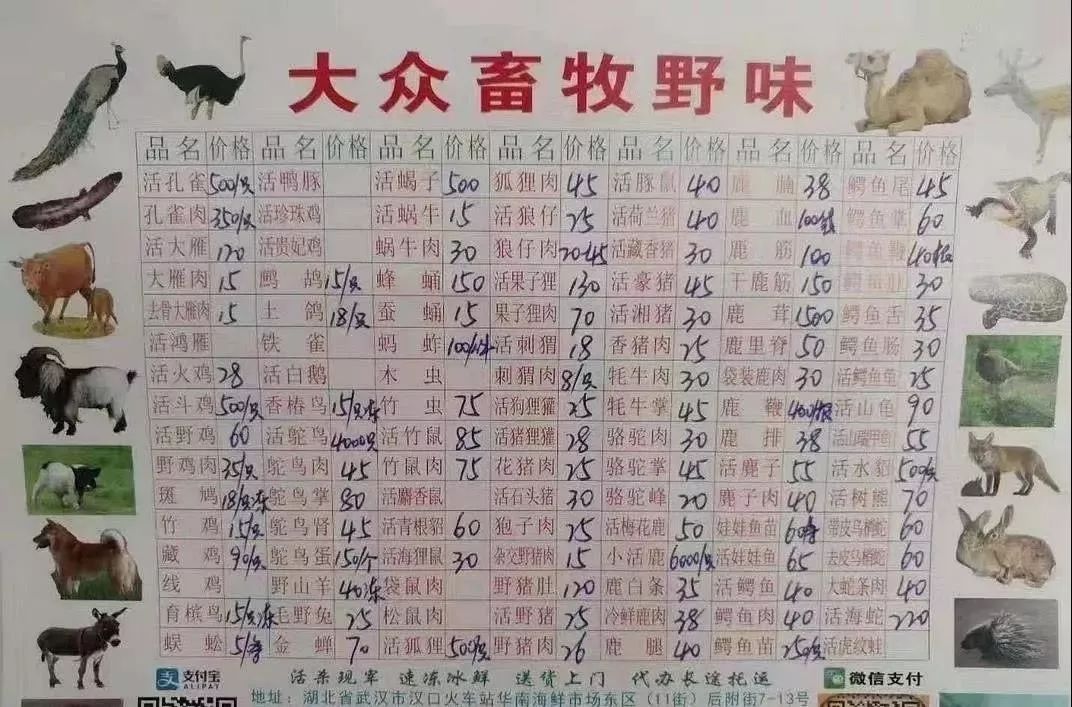 大众畜牧野味
品名 价格 品名 价格 品名 价格 品名 价格 品名 价格 品名 价格 品名 价格
活孔雀 500/只 活鸭豚 活蝎子 500 狐狸肉 45 活豚鼠 40 鹿腩 38 鳄鱼尾 45
孔雀肉 350/只 活珍珠鸡 活蜗牛 15 活狼仔 25 活荷兰猪 40 鹿血 鳄鱼掌 60
活大雁 120 活贵妃鸡 蜗牛肉 30 狼仔肉 20-45 活藏香猪 30 鹿筋 100 鳄鱼鞭
大雁肉 15 鹧鸪 15/只 蜂蛹 150 活果子狸 130 活豪猪 45 干鹿筋 150 鳄鱼肚 30
去骨大雁肉 15 土鸽 18/只 蚕蛹 15 果子狸肉 70 活湘猪 30 鹿茸 1500 鳄鱼舌 35
活鸿雁 铁雀 蚂蚱 活刺猬 18 香猪肉 25 鹿里脊 50 鳄鱼肠 30
活火鸡 28 活白鹅 木虫 刺猬肉 8/只 牦牛肉 30 袋装鹿肉 30 活鳄鱼龟 25
活斗鸡 500/只 香椿鸟 15/只冻 竹虫 75 活狗狸獾 25 牦牛掌 45 鹿鞭 活山龟 90
活野鸡 60 活鸵鸟 4000只 活竹鼠 85 活猪狸獾 28 骆驼肉 30 鹿排 38 55
野鸡肉 35/只 鸵鸟肉 45 竹鼠肉 75 花猪肉 25 骆驼掌 45 活麂子 55 活水貂 500/只
斑鸠 18/只冻 鸵鸟掌 80 活麝香鼠 活石头猪 30 骆驼峰 20 麂子肉 40 活树熊 70
竹鸡 15/只 鸵鸟肾 45 活青根貂 60 狍子肉 25 活梅花鹿 50 娃娃鱼苗 带皮乌梢蛇 60
藏鸡 90/只 鸵鸟蛋 150/个 活海狸鼠 30 杂交野猪肉 15 小活鹿 6000/只 活娃娃鱼 65 去皮乌梢蛇 60
线鸡 野山羊 40冻 袋鼠肉 野猪肚 120 鹿白条 35 活鳄鱼 40 大蛇条肉 40
育槟鸟 15/只冻 毛野兔 25 松鼠肉 活野猪 25 冷鲜鹿肉 38 鳄鱼肉 40 活海蛇 220
蜈蚣 金蝉 70 活狐狸 500/只 野猪肉 26 鹿腿 40 鳄鱼苗 250/只 活虎纹蛙
支付宝 ALIPAY 活杀现宰 速冻冰鲜 送货上门 代办长途托运 微信支付
地址：湖北省武汉市汉口火车站华南海鲜市场东区（11街）后附街7-13号